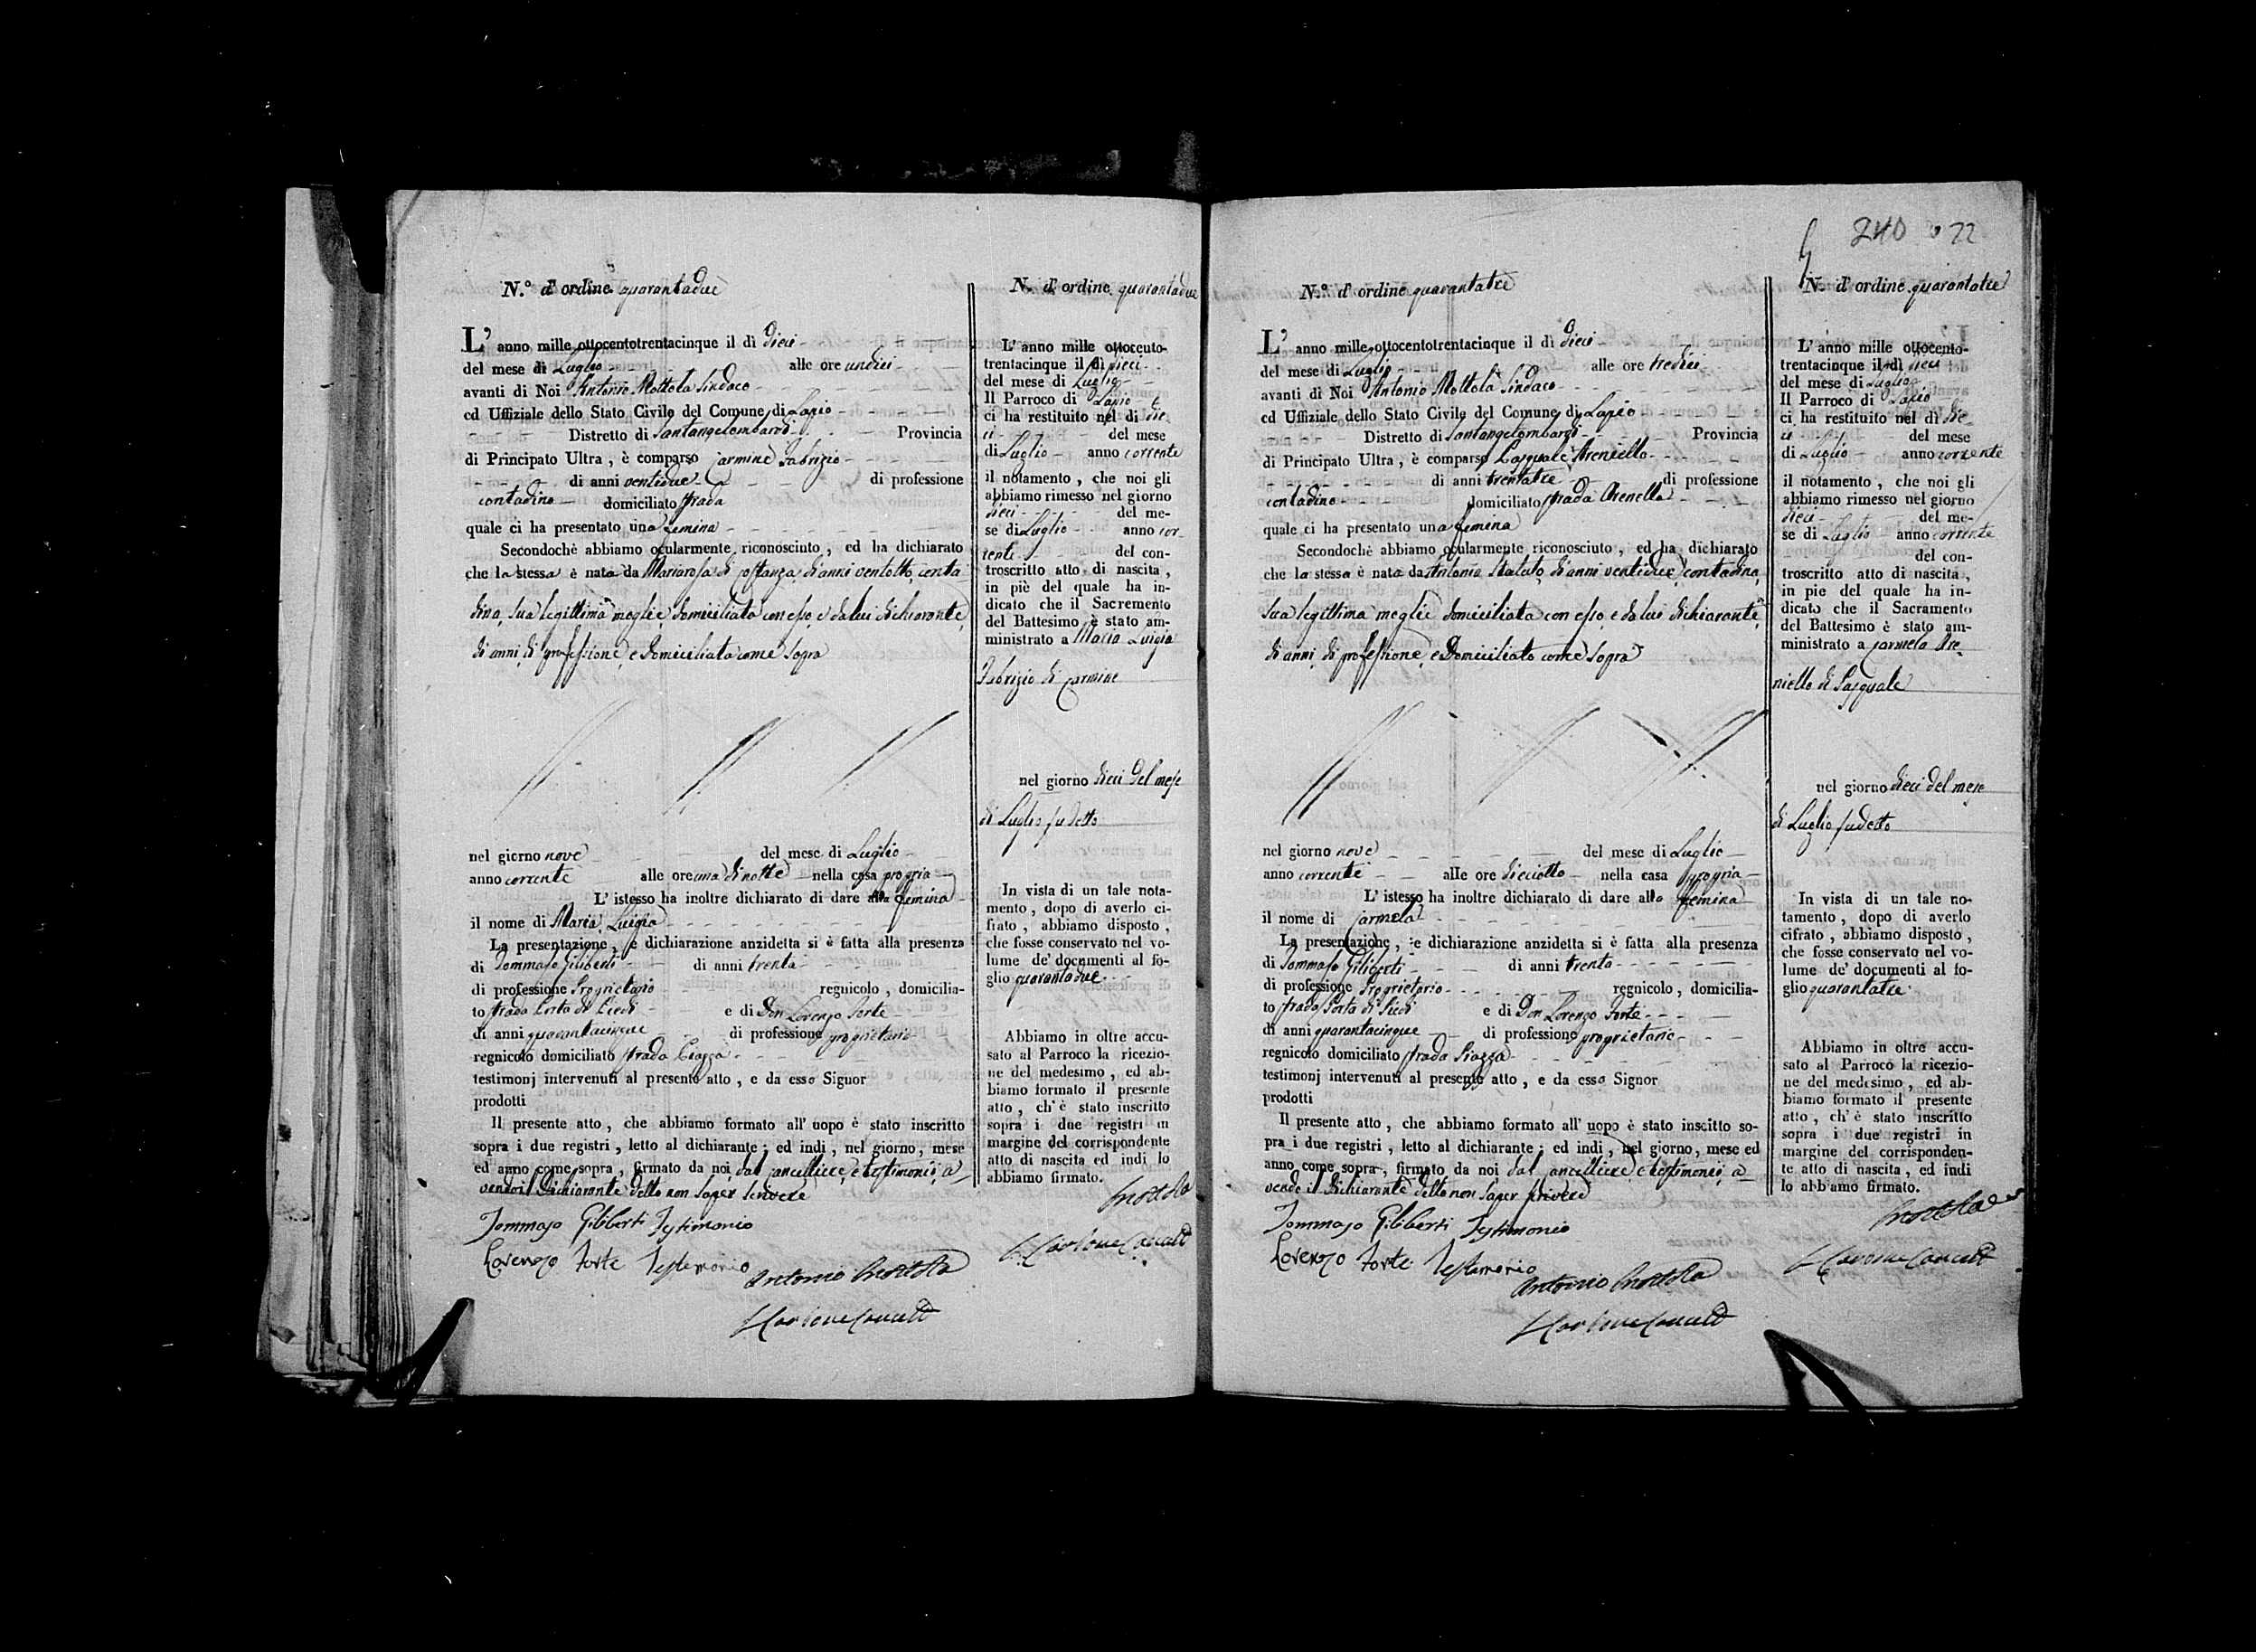 N.° d' ordine quarantadue
L' anno mille ottocentotrentacinque il dì dieci
del mese di Luglio alle ore undici
avanti di Noi Antonio Mottola Sindaco
ed Uffiziale dello Stato Civile del Comune di Lapio
Distretto di Santangelombardi Provincia
di Principato Ultra , è comparso Carmine Fabrizio
di anni ventidue di professione
contadino domiciliato strada
quale ci ha presentato una femina
Secondochè abbiamo ocularmente riconosciuto , ed ha dichiarato
che la stessa è nata da Mariarosa di Costanza, di anni ventotto, conta
dina, sua legittima moglie domiciliata con esso, e da lui dichiarante,
di anni, di professione, e domiciliata come sopra
nel giorno nove del mese di Luglio
anno corrente alle ore una di notte nella casa propria
L' istesso ha inoltre dichiarato di dare alla femina
il nome di Maria Luigia
La presentazione , e dichiarazione anzidetta si è fatta alla presenza
di Tommaso Giliberti di anni trenta
di professione Proprietario regnicolo , domicilia-
to strada Porta di Piedi e di Don Lorenzo Forte
di anni quarantacinque di professione proprietario
regnicolo domiciliato strada Piazza
testimonj intervenuti al presente atto , e da esso Signor
prodotti
Il presente atto , che abbiamo formato all' uopo è stato inscritto
sopra i due registri , letto al dichiarante ; ed indi , nel giorno , mese
ed anno come sopra , firmato da noi, dal Cancelliere, e testimonii, a
vendo il dichiarante detto non saper scrivere
Tommaso Giliberti Testimonio
Lorenzo Forte Testimonio
Antonio Mottola
N. d' ordine quarantadue
L' anno mille ottocento-
trentacinque il dì dieci
del mese di Luglio
Il Parroco di Lapio
ci ha restituito nel dì die
ci del mese
di Luglio anno corrente
il notamento , che noi gli
abbiamo rimesso nel giorno
dieci del me-
se di Luglio anno cor-
rente del con-
troscritto atto di nascita ,
in piè del quale ha in-
dicato che il Sacremento
del Battesimo è stato am-
ministrato a Maria Luigia
Fabrizio di Carmine
nel giorno dieci del mese
di Luglio sudetto
In vista di un tale nota-
mento , dopo di averlo ci-
frato , abbiamo disposto ,
che fosse conservato nel vo-
lume de' documenti al fo-
glio quarantadue
Abbiamo in oltre accu-
sato al Parroco la ricezio-
ne del medesimo , ed ab-
biamo formato il presente
atto , ch' è stato inscritto
sopra i due registri in
margine del corrispondente
atto di nascita ed indi lo
abbiamo firmato.
Mottola
240 22
N.° d' ordine quarantatre
L' anno mille ottocentotrentacinque il dì dieci
del mese di Luglio alle ore tredici
avanti di Noi Antonio Mottola Sindaco
ed Uffiziale dello Stato Civile del Comune di Lapio
Distretto di Santangelombardi Provincia
di Principato Ultra , è comparso Pasquale Areniello
di anni trentatre di professione
contadino domiciliato strada Arenella
quale ci ha presentato una femina
Secondochè abbiamo ocularmente riconosciuto , ed ha dichiarato
che la stessa è nata da Antonia Statuto, di anni ventidue, contadina,
sua legittima moglie domiciliata con esso, e da lui dichiarante,
di anni, di professione, e domiciliato come sopra
nel giorno nove del mese di Luglio
anno corrente alle ore dieciotto nella casa propria
L' istesso ha inoltre dichiarato di dare alla femina
il nome di Carmela
La presentazione , e dichiarazione anzidetta si è fatta alla presenza
di Tommaso Giliberti di anni trenta
di professione Proprietario regnicolo , domicilia-
to strada Porta di Piedi e di Don Lorenzo Forte
di anni quarantacinque di professione proprietario
regnicolo domiciliato strada Piazza
testimonj intervenuti al presente atto , e da esso Signor
prodotti
Il presente atto , che abbiamo formato all' uopo è stato inscitto so-
pra i due registri , letto al dichiarante ; ed indi , nel giorno, mese ed
anno come sopra , firmato da noi dal Cancelliere, e testimonii, a
vendo il dichiarante detto non saper scrivere
Tommaso Giliberti Testimonio
Lorenzo Forte Testamonio
Antonio Mottola
N. d' ordine quarantatre
L' anno mille ottocento-
trentacinque il dì dieci
del mese di Luglio
Il Parroco di Lapio
ci ha restituito nel dì die
ci del mese
di Luglio anno corrente
il notamento , che noi gli
abbiamo rimesso nel giorno
dieci del me-
se di Luglio anno corrente
del con-
troscritto atto di nascita ,
in pie del quale ha in-
dicato che il Sacramento
del Battesimo è stato am-
ministrato a Carmela Are
niello di Pasquale
nel giorno dieci del mese
di Luglio sudetto
In vista di un tale no-
tamento , dopo di averlo
cifrato , abbiamo disposto ,
che fosse conservato nel vo-
lume de' documenti al fo-
glio quarantatre
Abbiamo in oltre accu-
sato al Parroco la ricezio-
ne del medesimo , ed ab-
biamo formato il presente
atto , ch' è stato inscritto
sopra i due registri in
margine del corrisponden-
te atto di nascita , ed indi
lo abbiamo firmato.
Mottola